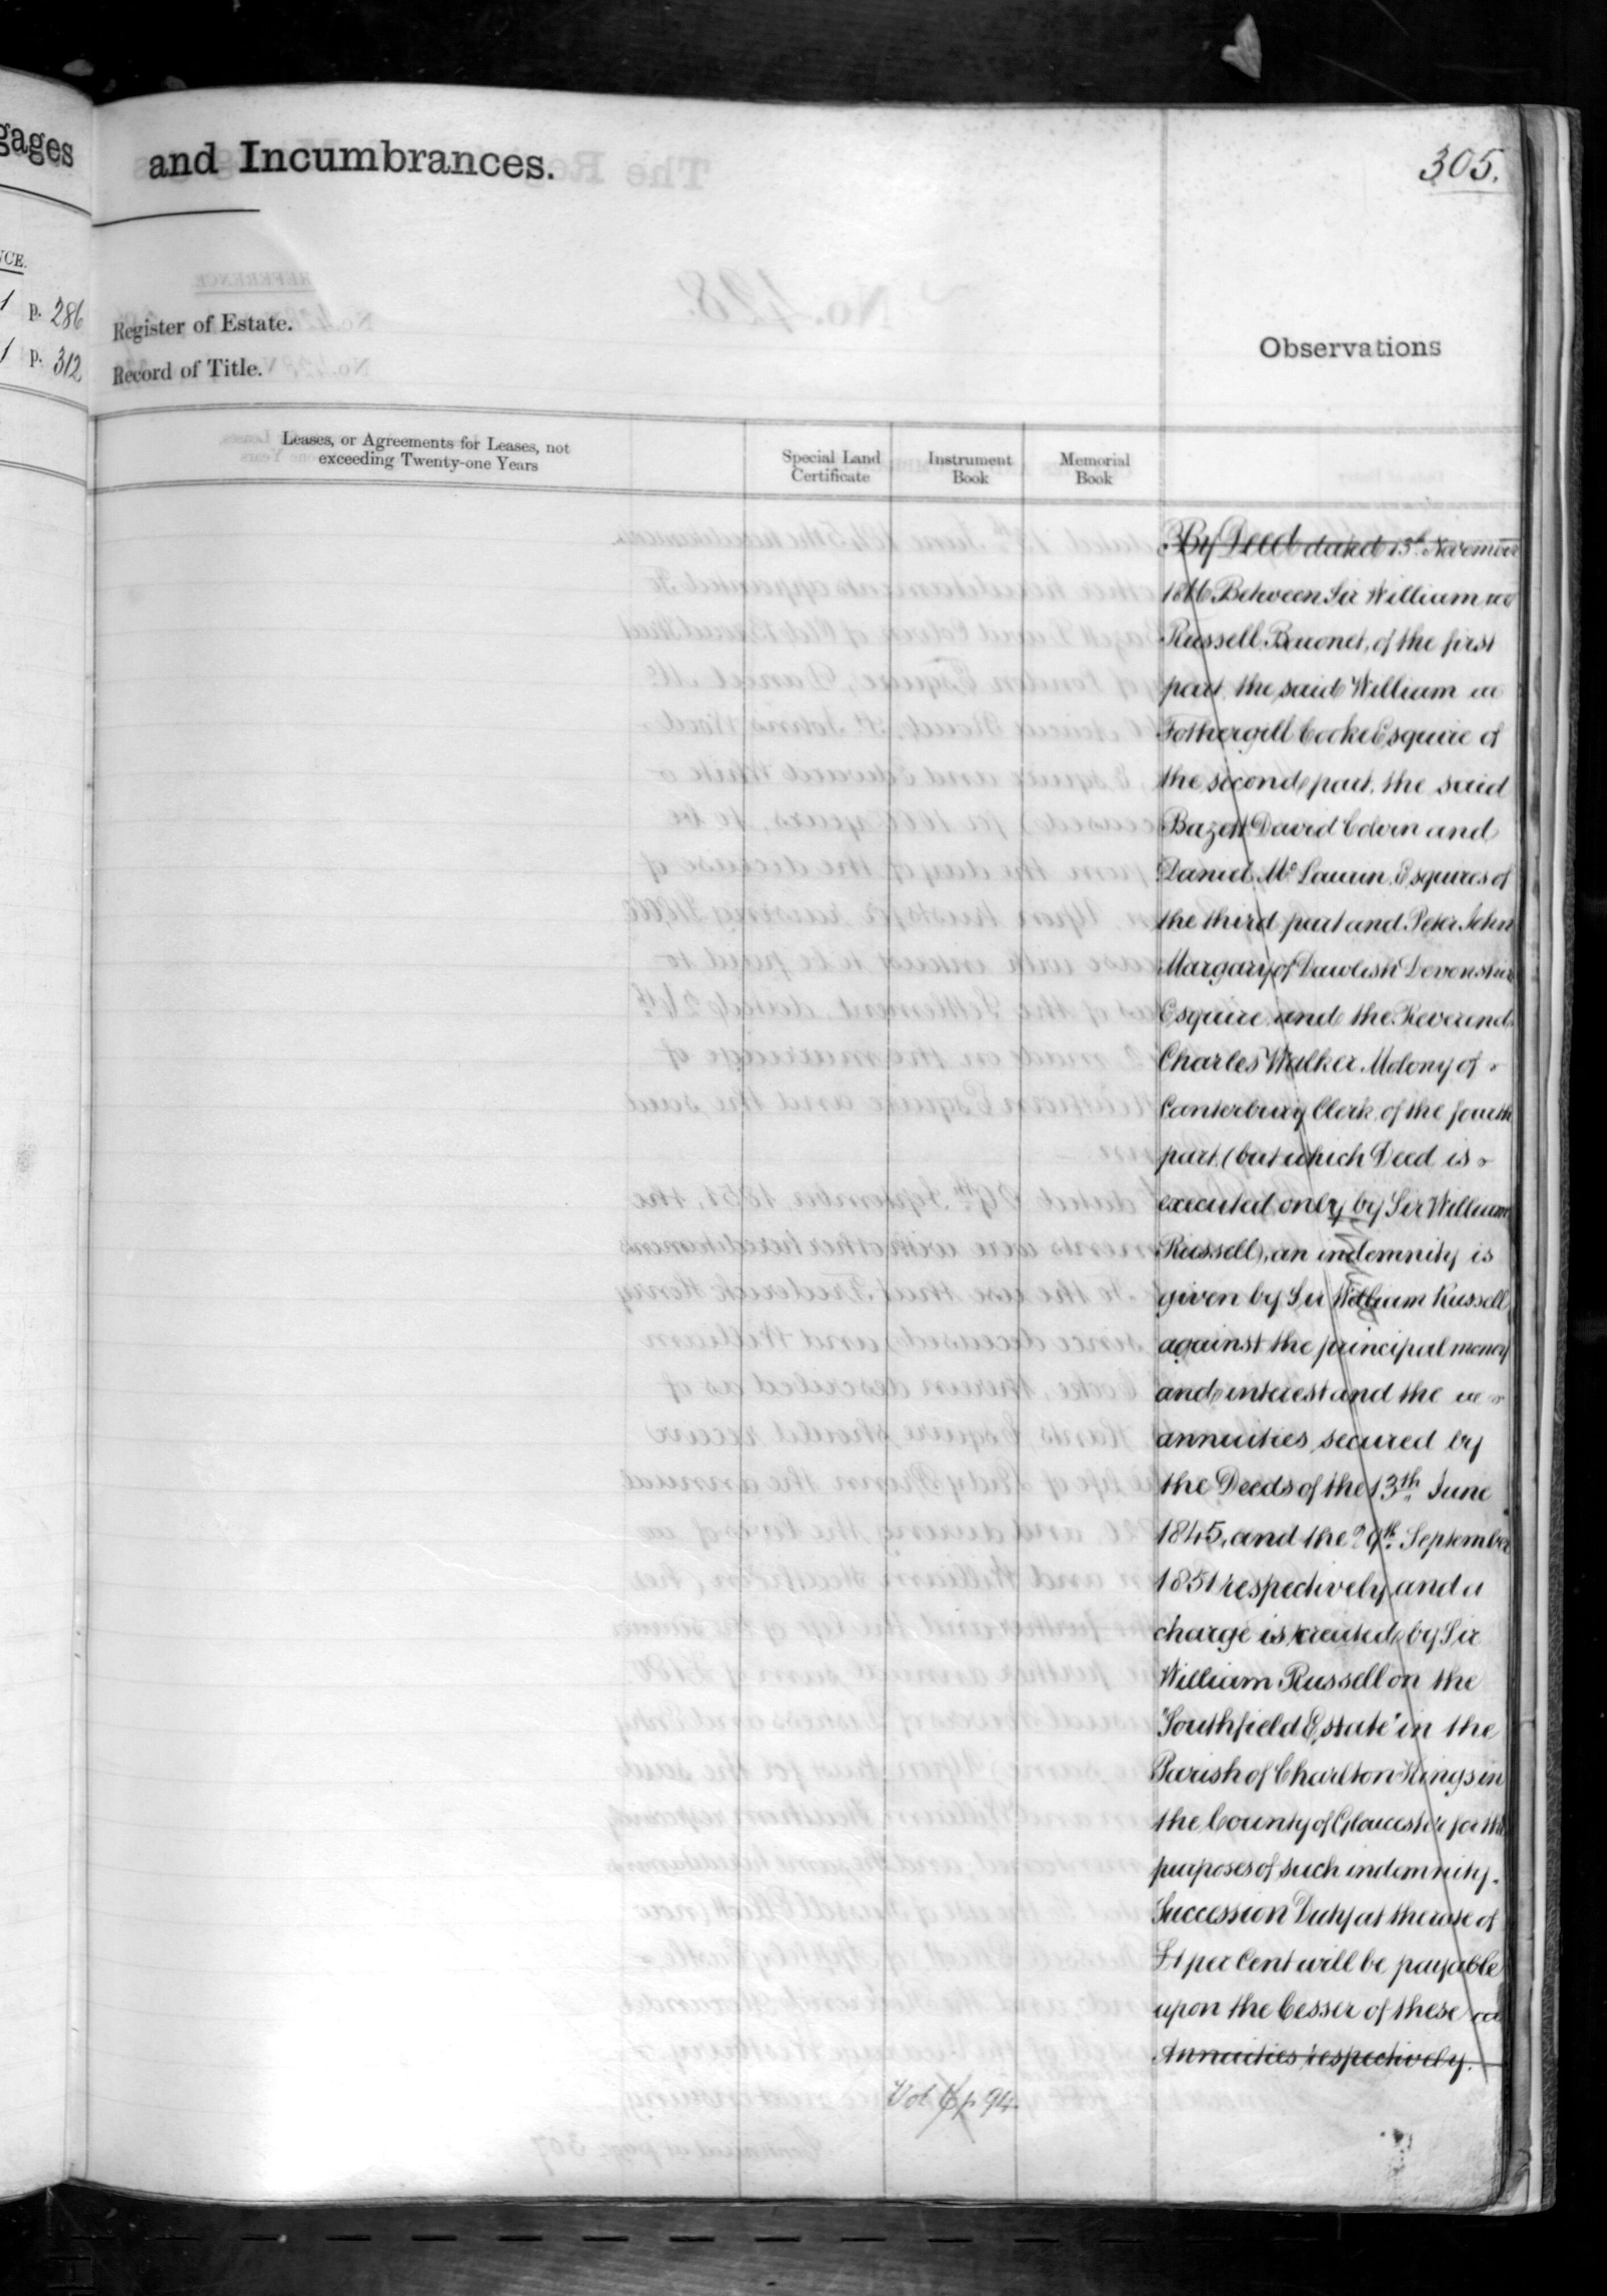 gages
and Incumbrances.
305.
NCE.
1 p. 286
1 p. 312
Register of Estate.
Record of Title.
Observations
Leases, or Agreements for Leases, not
exceeding Twenty-one Years
Special Land
Certificate
Instrument
Book
Memorial
Book
By Deed dated 13th November
1866 Between Sir William
Russell Baronet, of the first
part, the said William
Fothergill Cooke Esquire of
the second part, the said
Bazett David Colvin and
Daniel Mc Laurin Esquires of
the third part and Peter John
Margary of Dawlish Devonshire
Esquire and the Reverend
Charles Walker Molony of
Canterbury Clerk, of the fourth
part, (but which Deed is
executed only by Sir William
Russell), an indemnity is
given by Sir William Russell
against the principal money
and interest and the
annuities secured by
the Deeds of the 13th June
1845, and the 29th September
1851 respectively and a
charge is created by Sir
William Russell on the
"Southfield Estate" in the
Parish of Charlton Kings in
the County of Gloucester for the
purposes of such indemnity.
Succession Duty at the rate of
£1 per Cent will be payable
upon the Cesser of these
Annuities respectively.
Vol. 6 p 94